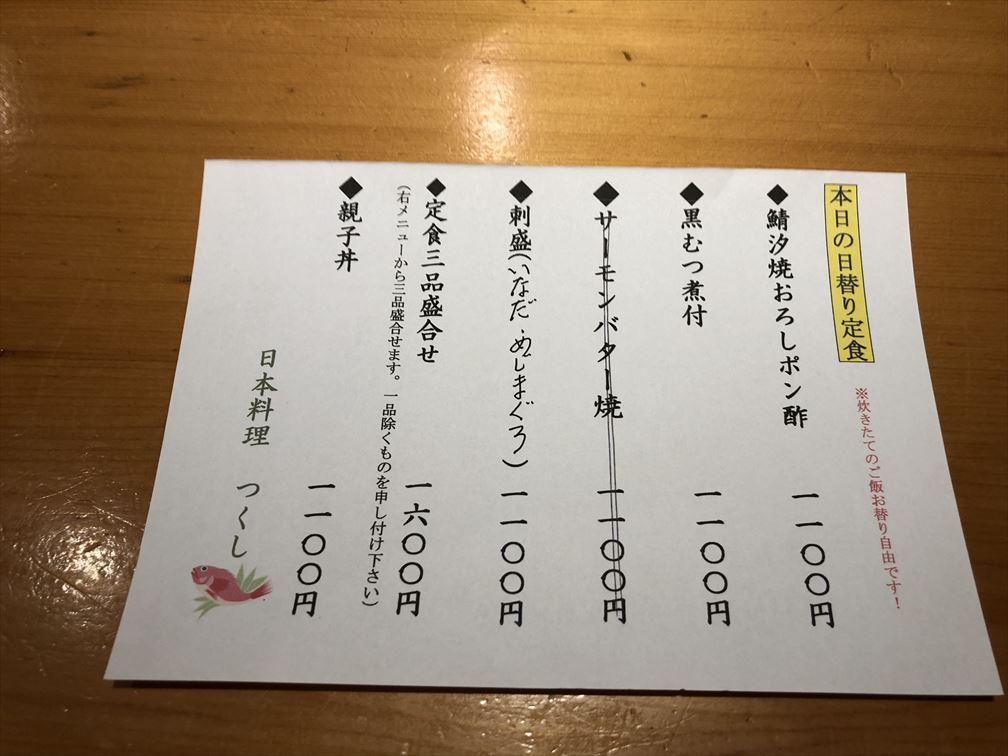 本日の日替り定食
※炊きたてのご飯お替り自由です！
◆鯖汐焼おろしポン酢 一一〇〇円
◆黒むつ煮付 一一〇〇円
◆サーモンバター焼 一一〇〇円
◆刺盛(いなだ・めじまぐろ) 一一〇〇円
◆定食三品盛合せ 一六〇〇円
(右メニューから三品盛合せます。一品除くものを申し付け下さい)
◆親子丼 一一〇〇円
日本料理 つくし